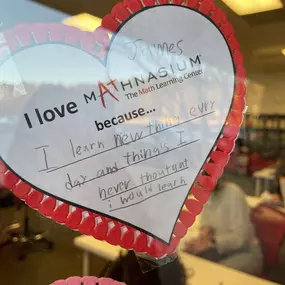 I love Math
James
I love MATHNASIUM®
The Math Learning Center
because...
I learn new thing evry
day and things I
never thought
i would learn